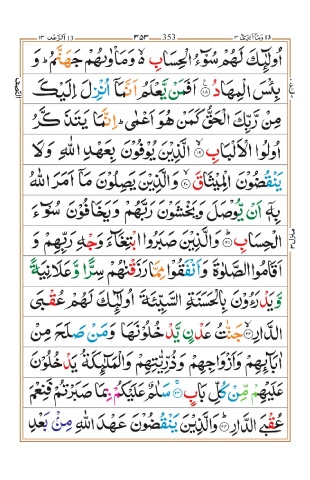 وما ابرئ ١٣ ٣٥٣ 353 الرعد ١٣
اُولٰٓئِكَ لَهُمْ سُوْٓءُ الْحِسَابِ ۙ وَمَاْوٰىهُمْ جَهَنَّمُ ؕ وَ
بِئْسَ الْمِهَادُ ۠ ﴿۱۸﴾ اَفَمَنْ يَّعْلَمُ اَنَّمَاۤ اُنْزِلَ اِلَيْكَ
مِنْ رَّبِّكَ الْحَقُّ كَمَنْ هُوَ اَعْمٰى ؕ اِنَّمَا يَتَذَكَّرُ
اُولُوا الْاَلْبَابِ ۙ ﴿۱۹﴾ الَّذِيْنَ يُوْفُوْنَ بِعَهْدِ اللّٰهِ وَلَا
يَنْقُضُوْنَ الْمِيْثَاقَ ۙ ﴿۲۰﴾ وَالَّذِيْنَ يَصِلُوْنَ مَاۤ اَمَرَ اللّٰهُ
بِهٖۤ اَنْ يُّوْصَلَ وَيَخْشَوْنَ رَبَّهُمْ وَيَخَافُوْنَ سُوْٓءَ
الْحِسَابِ ؕ ﴿۲۱﴾ وَالَّذِيْنَ صَبَرُوا ابْتِغَآءَ وَجْهِ رَبِّهِمْ وَ
اَقَامُوا الصَّلٰوةَ وَاَنْفَقُوْا مِمَّا رَزَقْنٰهُمْ سِرًّا وَّعَلَانِيَةً
وَّيَدْرَءُوْنَ بِالْحَسَنَةِ السَّيِّئَةَ اُولٰٓئِكَ لَهُمْ عُقْبَى
الدَّارِ ۙ ﴿۲۲﴾ جَنّٰتُ عَدْنٍ يَّدْخُلُوْنَهَا وَمَنْ صَلَحَ مِنْ
اٰبَآئِهِمْ وَاَزْوَاجِهِمْ وَذُرِّيّٰتِهِمْ وَالْمَلٰٓئِكَةُ يَدْخُلُوْنَ
عَلَيْهِمْ مِّنْ كُلِّ بَابٍ ۚ ﴿۲۳﴾ سَلٰمٌ عَلَيْكُمْ بِمَا صَبَرْتُمْ فَنِعْمَ
عُقْبَى الدَّارِ ؕ ﴿۲۴﴾ وَالَّذِيْنَ يَنْقُضُوْنَ عَهْدَ اللّٰهِ مِنْۢ بَعْدِ